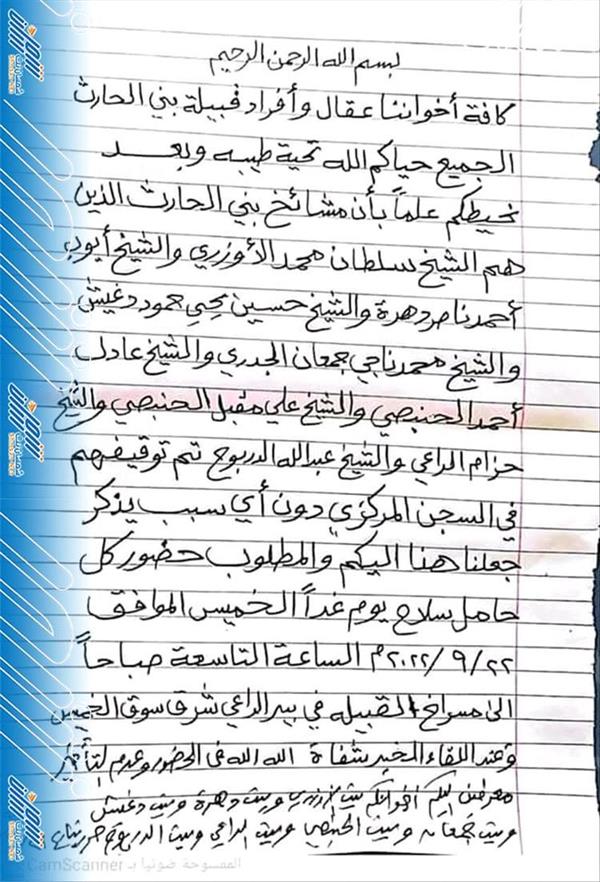 بسم الله الرحمن الرحيم
كافة أخواننا عقال وأفراد قبيلة بني الحارث
الجميع حياكم الله تحية طيبه وبعد
نحيطكم علماً بأن مشائخ بني الحارث الذين
هم الشيخ سلطان محمد الأوزري والشيخ أيوب
أحمد ناصر دهرة والشيخ حسين يحيى حمود دغيش
والشيخ محمد ناجي جمعان الجدري والشيخ عادل
أحمد الحنبصي والشيخ علي مقبل الحنبصي والشيخ
حزام الراعي والشيخ عبدالله الدربوج تم توقيفهم
في السجن المركزي دون أي سبب يذكر
جعلنا هنا اليكم والمطلوب حضور كل
حامل سلاح يوم غداً الخميس الموافق
٢٠٢٢/٩/٢٢م الساعة التاسعة صباحاً
الى مسراخ القبيله في بير الراعي شرق سوق الخميس
وعند اللقاء الخبر شفاة الله الله في الحضور وعدم التأخير
معرضين اليكم اخوانكم بيت زرري وبيت دهرة وبيت دغيش
وبيت جمعان وبيت الحنبصي وبيت الراعي وبيت الدربوج
الممسوحة ضوئيا بـ CamScanner